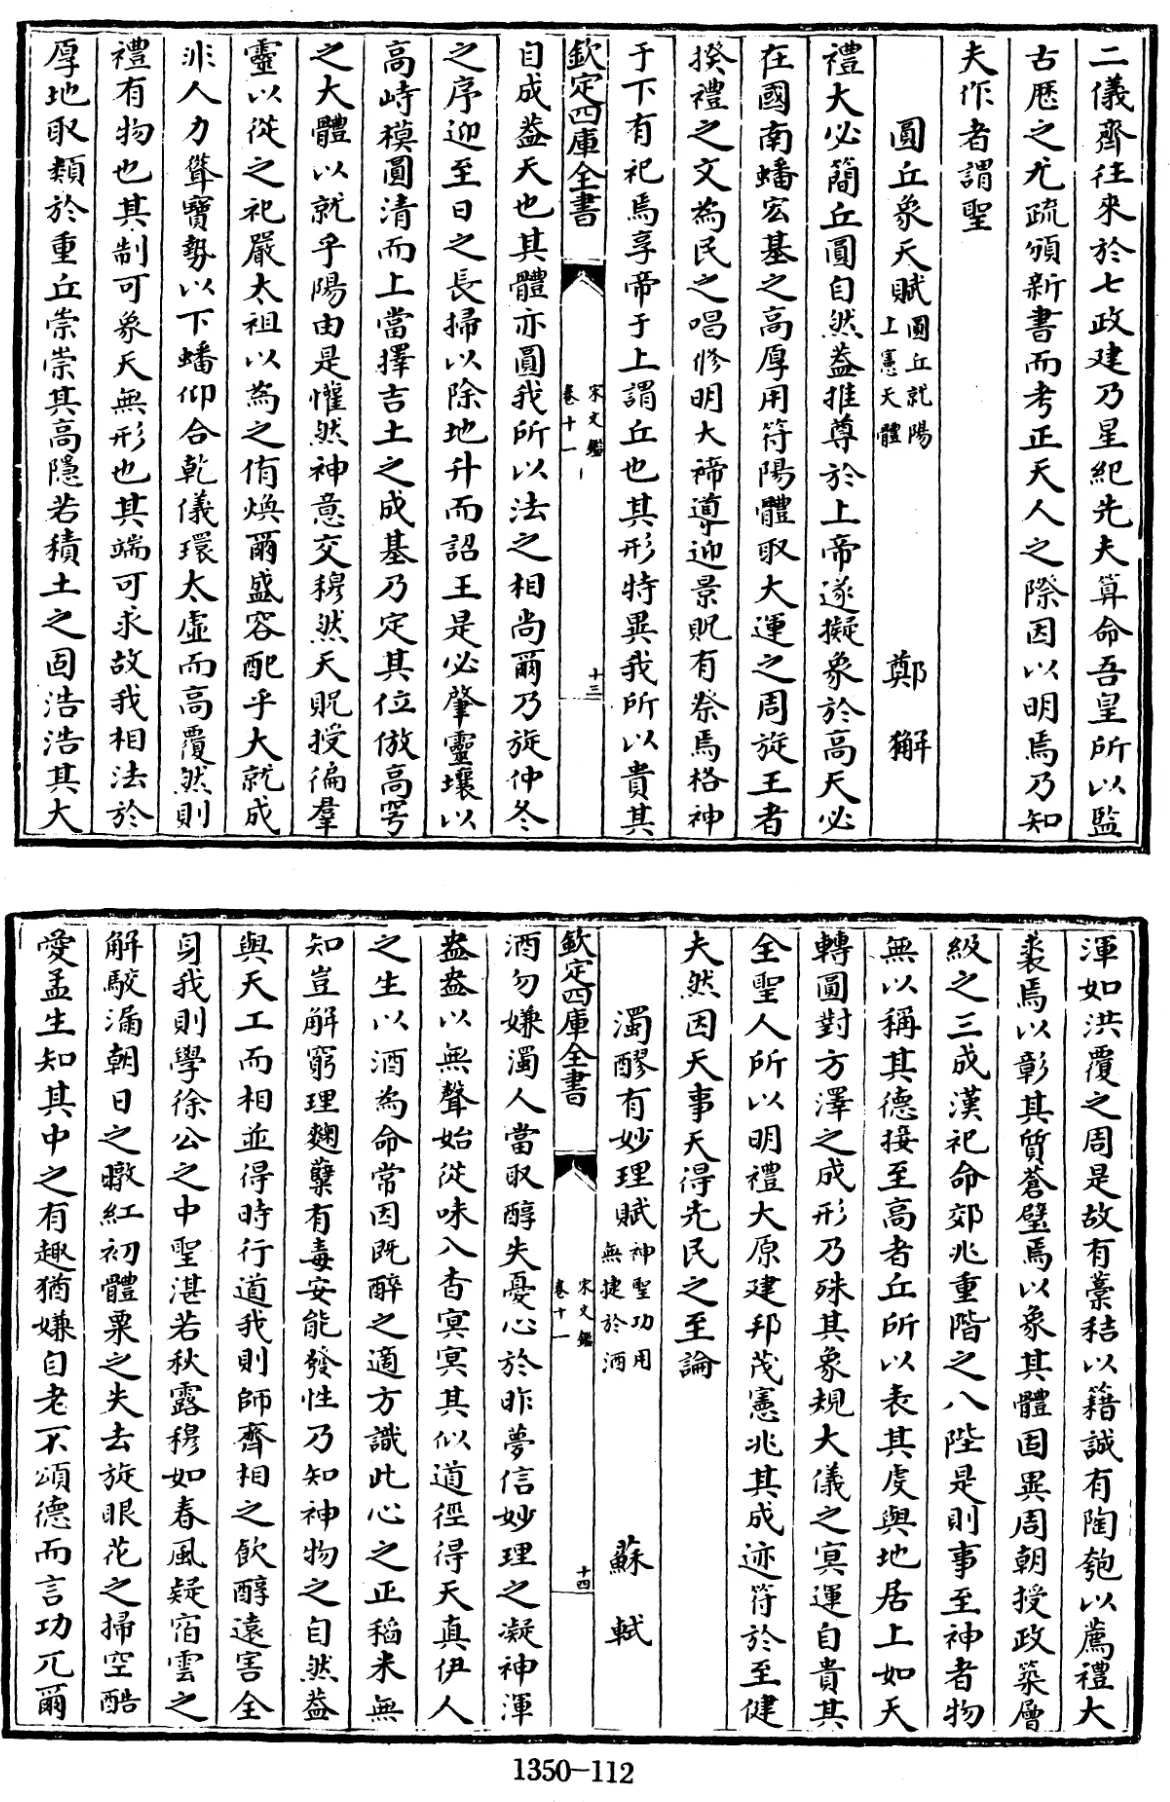 二儀齊往來於七政建乃星紀先夫算命吾皇所以監
古歴之尤疏頒新書而考正天人之際因以明焉乃知
夫作者謂聖
圓丘象天賦圓丘就陽上憲天體 鄭獬
禮大必簡丘圓自然葢推尊於上帝遂擬象於高天必
在國南蟠宏基之髙厚用符陽體取大運之周旋王者
揆禮之文為民之唱修明大禘導迎景貺有祭焉格神
于下有祀焉享帝于上謂丘也其形特異我所以貴其
欽定四庫全書 宋文鑑卷十一 十三
自成葢天也其體亦圓我所以法之相尚爾乃旋仲冬
之序迎至日之長掃以除地升而詔王是必肇靈壤以
高峙模圓清而上當擇吉土之成基乃定其位倣高穹
之大體以就乎陽由是懽然神意交穆然天貺授徧羣
靈以從之祀嚴太祖以為之侑煥爾盛容配乎大就成
非人力聳寶勢以下蟠仰合乾儀環太虛而高覆然則
禮有物也其制可象天無形也其端可求故我相法於
厚地取類於重丘崇崇其高隱若積土之固浩浩其大
渾如洪覆之周是故有藁秸以籍誠有陶匏以薦禮大
裘焉以彰其質蒼璧焉以象其體固異周朝授政築層
級之三成漢祀命郊兆重階之八陛是則事至神者物
無以稱其德接至高者丘所以表其虔與地居上如天
轉圓對方澤之成形乃殊其象規大儀之㝠運自貴其
全聖人所以明禮大原建邦茂憲兆其成迹符於至健
夫然因天事天得先民之至論
濁醪有妙理賦神聖功用無捷於酒 蘇軾
欽定四庫全書 宋文鑑卷十一 十四
酒勿嫌濁人當取醇失憂心於昨夢信妙理之凝神渾
盎盎以無聲始從味入杳冥冥其似道徑得天真伊人
之生以酒為命常因既醉之適方識此心之正稻米無
知豈解窮理麴糵有毒安能發性乃知神物之自然葢
與天工而相並得時行道我則師齊相之飲醇遠害全
身我則學徐公之中聖湛若秋露穆如春風疑宿雲之
解駮漏朝日之暾紅初體粟之失去旋眼花之掃空酷
愛孟生知其中之有趣猶嫌白老不頌德而言功兀爾
1350-112